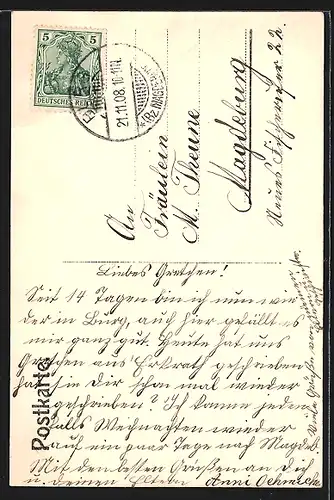 5 5
DEUTSCHES REICH
21.11.08. 10-11N.
* (BZ. MAGDEBURG)
Postkarte
An
Fräulein
M. Theune
Magdeburg
Neues Fischerufer 22.
Liebes Gretchen!
Seit 14 Tagen bin ich nun wie-
der in Burg, auch hier gefällt es
mir ganz gut. Heute hat uns
Gretchen aus Erkrath geschrieben
hat sie Dir schon mal wieder
geschrieben? Ich komme jeden-
falls Weihnachten wieder
auf ein paar Tage nach Magdeb.
Mit den besten Grüßen an Dich
u. deinen Eltern Anni
Viele Grüße von